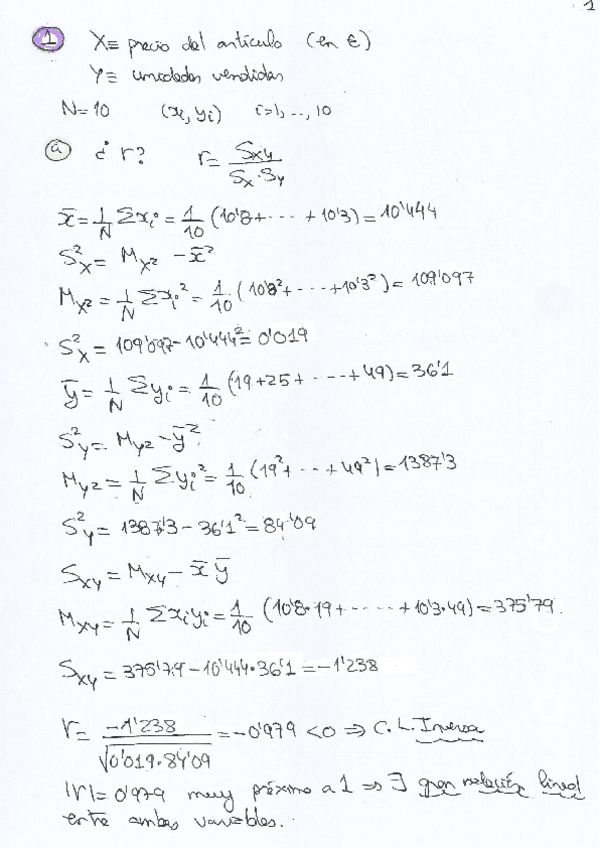 1
1 X≡ precio del artículo (en €)
Y≡ unidades vendidas
N=10 (xi, yi) i=1, ..., 10
a ¿ r? r= Sxy / Sx·Sy
x̄ = 1/N Σxi = 1/10 (10'8+ ··· + 10'3) = 10'444
S²x = Mx² - x̄²
Mx² = 1/N Σxi² = 1/10 (10'8²+ ··· +10'3²) = 109'097
S²x = 109'097-10'444² = 0'019
ȳ = 1/N Σyi = 1/10 (19+25+ ···· +49) = 36'1
S²y = My² - ȳ²
My² = 1/N Σyi² = 1/10 (19²+ ·· +49²) = 1387'3
S²y = 1387'3 - 36'1² = 84'09
Sxy = Mxy - x̄ ȳ
Mxy = 1/N Σxiyi = 1/10 (10'8·19+ ····· +10'3·49) = 375'79.
Sxy = 375'79 - 10'444·36'1 = -1'238
r = -1'238 / √0'019·84'09 = -0'979 <0 ⇒ C.L. Inversa
|r|= 0'979 muy próximo a 1 ⇒ ∃ gran relación lineal
entre ambas variables.